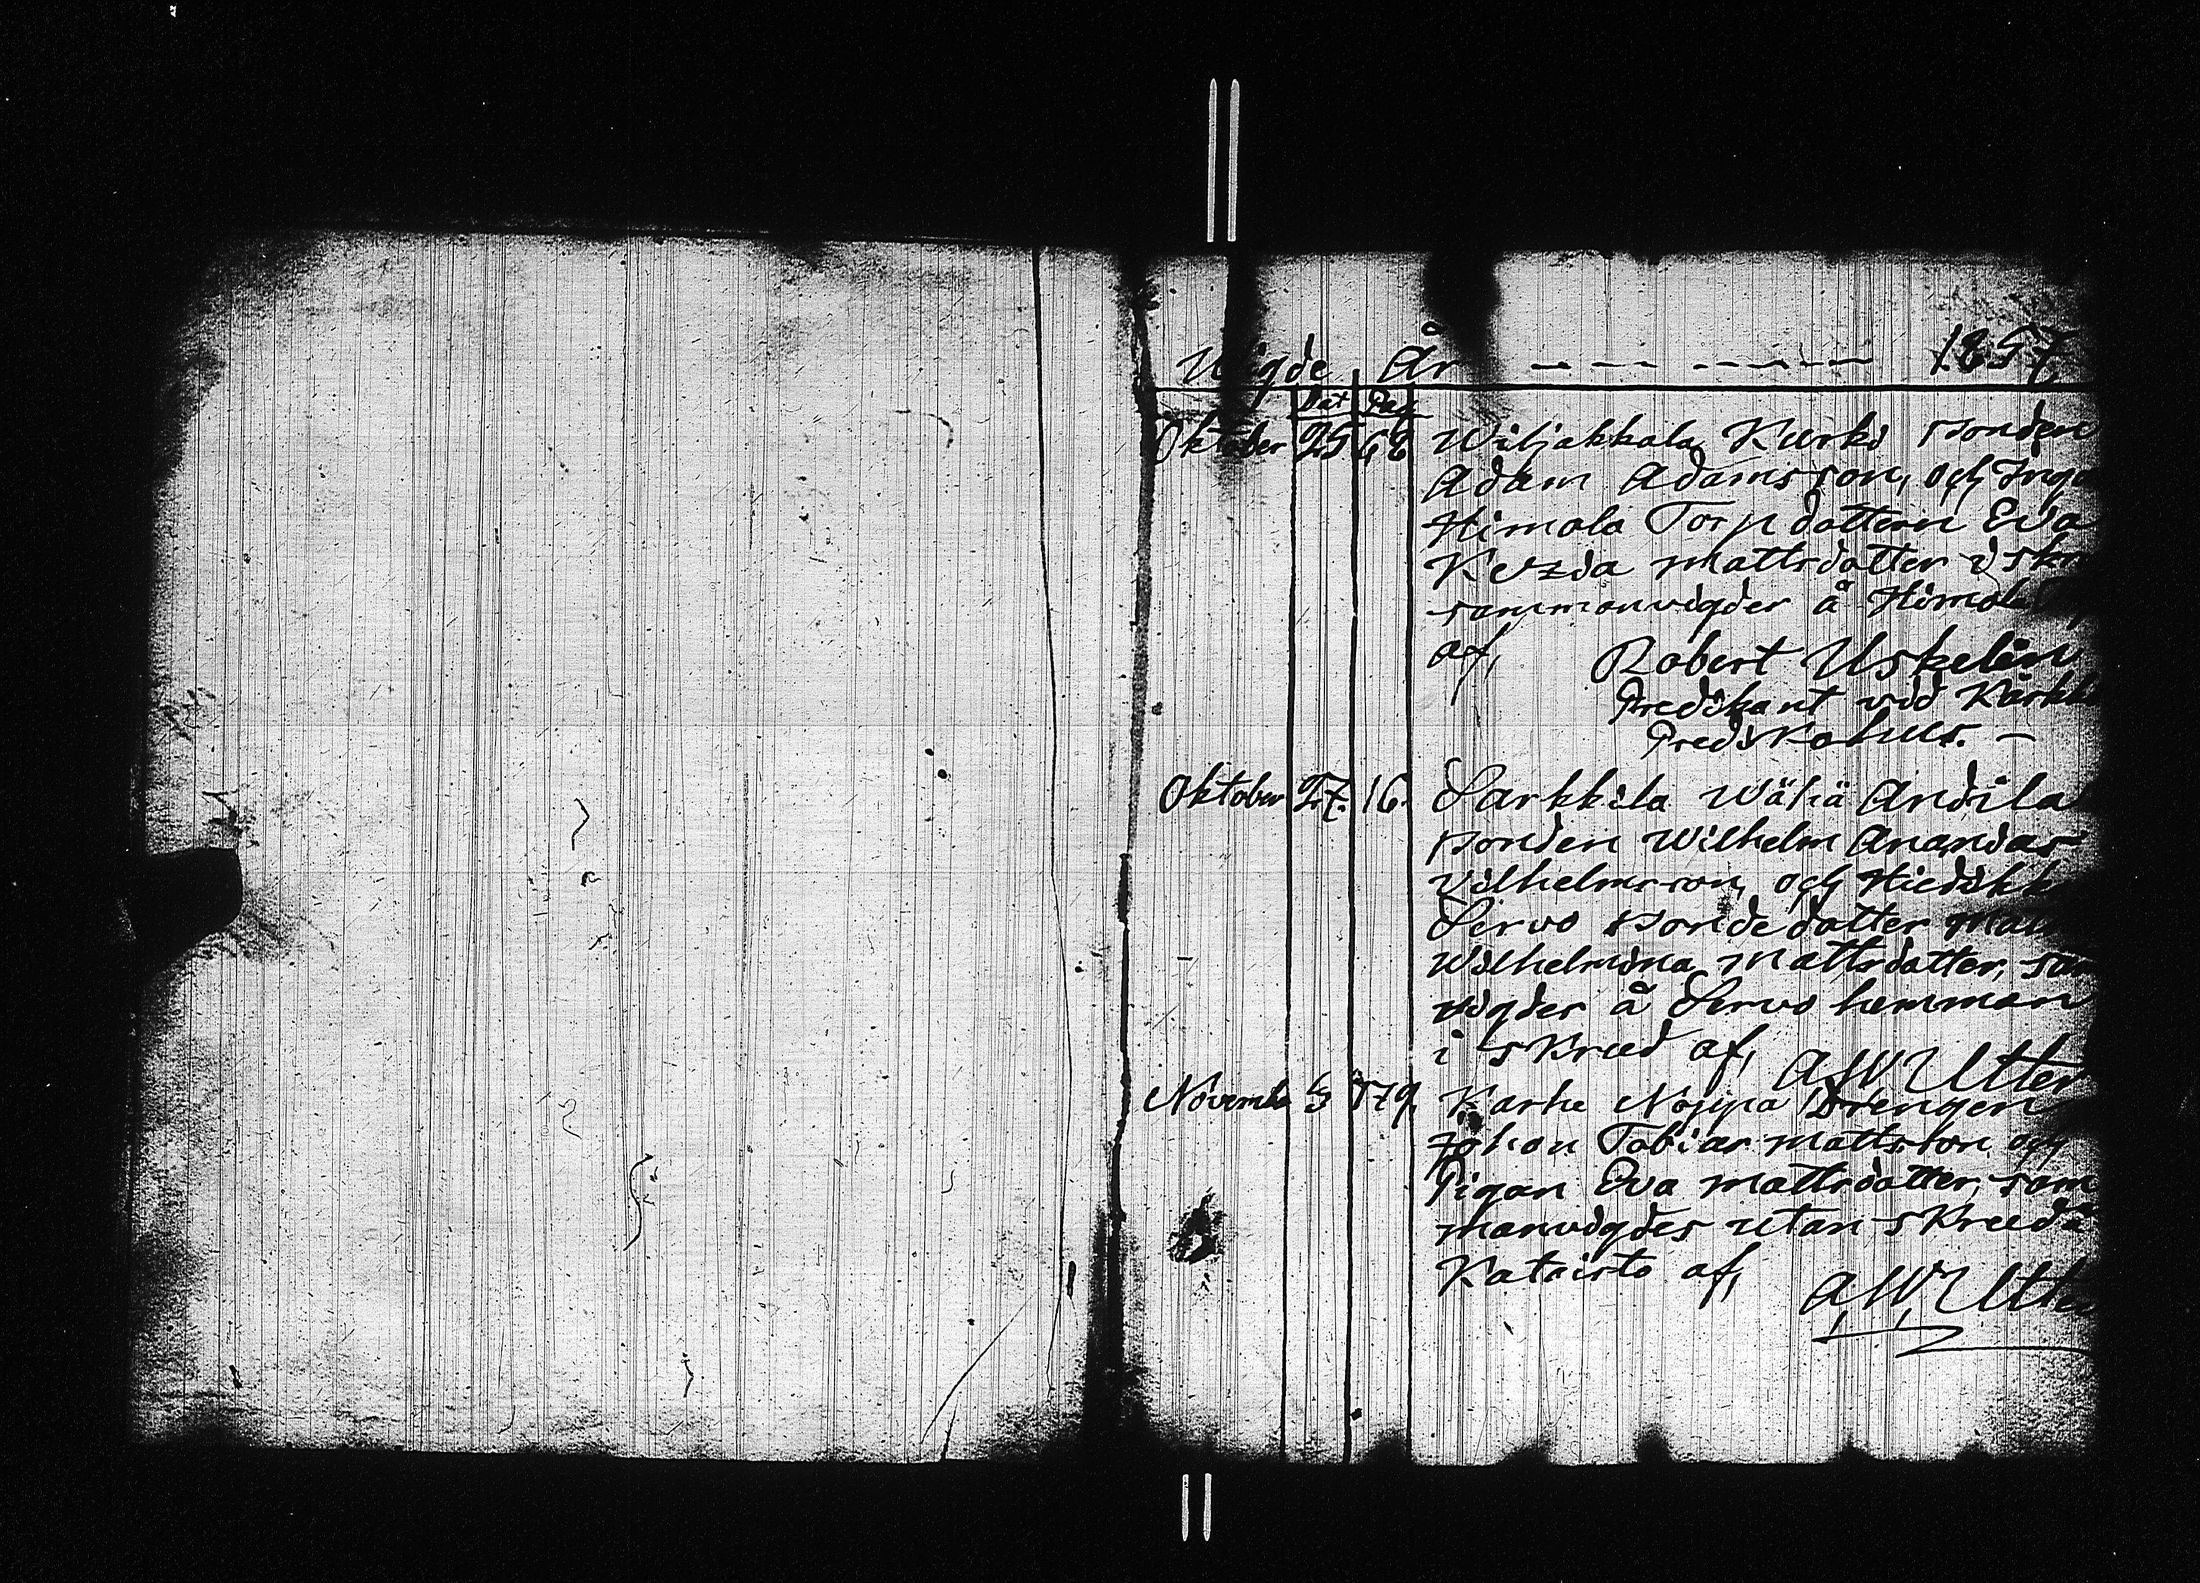 Wigde År — — — — — — 1857
Dat Pag
Oktober 25 68 Wiljakkala Kurki bonden
Adam Adamsson, och Inga
Himola Torp dottern Eva
mattsdotter i skr
sammanvigder å Himola
af, Robert Uskelin
Predikant vid Kärk
Oktober 27. 16. Sarkkila Wähä Andila
bonden Wilhelm Ananias
Vilhelmsson, och
Servo bonde dotter
Wilhelmina Mattsdotter, sam
vigder å Servo hemman
i skrud af, AWUtter
November 5 179, Karhe Nojipa Drengen
Johan Tobias mattsson och
Pigan Eva mattsdotter, sam
manvigdes utan skrud å
Kataisto af, A,W,Utter